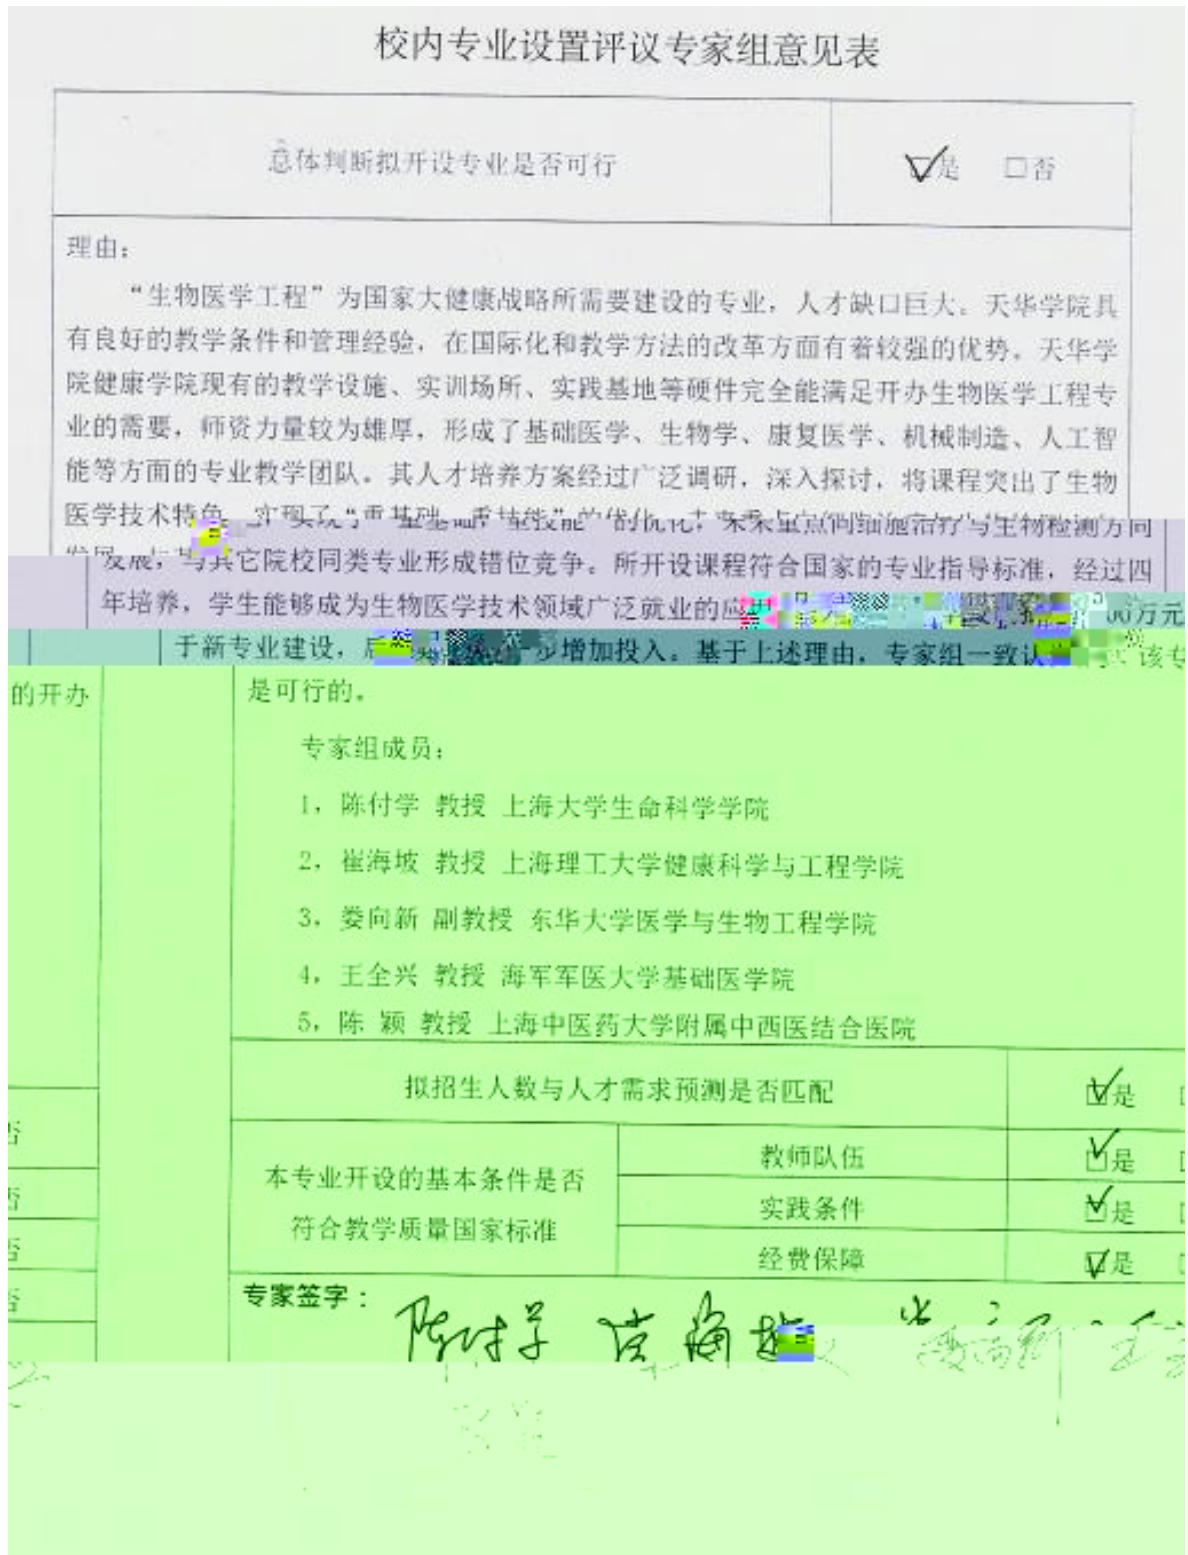 校内专业设置评议专家组意见表
总体判断拟开设专业是否可行 是 □否
理由：
“生物医学工程”为国家大健康战略所需要建设的专业，人才缺口巨大。天华学院具
有良好的教学条件和管理经验，在国际化和教学方法的改革方面有着较强的优势。天华学
院健康学院现有的教学设施、实训场所、实践基地等硬件完全能满足开办生物医学工程专
业的需要，师资力量较为雄厚，形成了基础医学、生物学、康复医学、机械制造、人工智
能等方面的专业教学团队。其人才培养方案经过广泛调研，深入探讨，将课程突出了生物
医学技术特色，实现了“重基础 重技能”的优化，未来重点向细胞治疗与生物检测方向
发展，与其它院校同类专业形成错位竞争。所开设课程符合国家的专业指导标准，经过四
年培养，学生能够成为生物医学技术领域广泛就业的应用 万元
于新专业建设，后 步增加投入。基于上述理由，专家组一致认 该专
的开办 是可行的。
专家组成员：
1，陈付学 教授 上海大学生命科学学院
2，崔海坡 教授 上海理工大学健康科学与工程学院
3，娄向新 副教授 东华大学医学与生物工程学院
4，王全兴 教授 海军军医大学基础医学院
5，陈 颖 教授 上海中医药大学附属中西医结合医院
拟招生人数与人才需求预测是否匹配 是
否
本专业开设的基本条件是否
符合教学质量国家标准
教师队伍 是
否
实践条件 是
否
经费保障 是
否
专家签字：
陈付学 崔海坡 娄向新